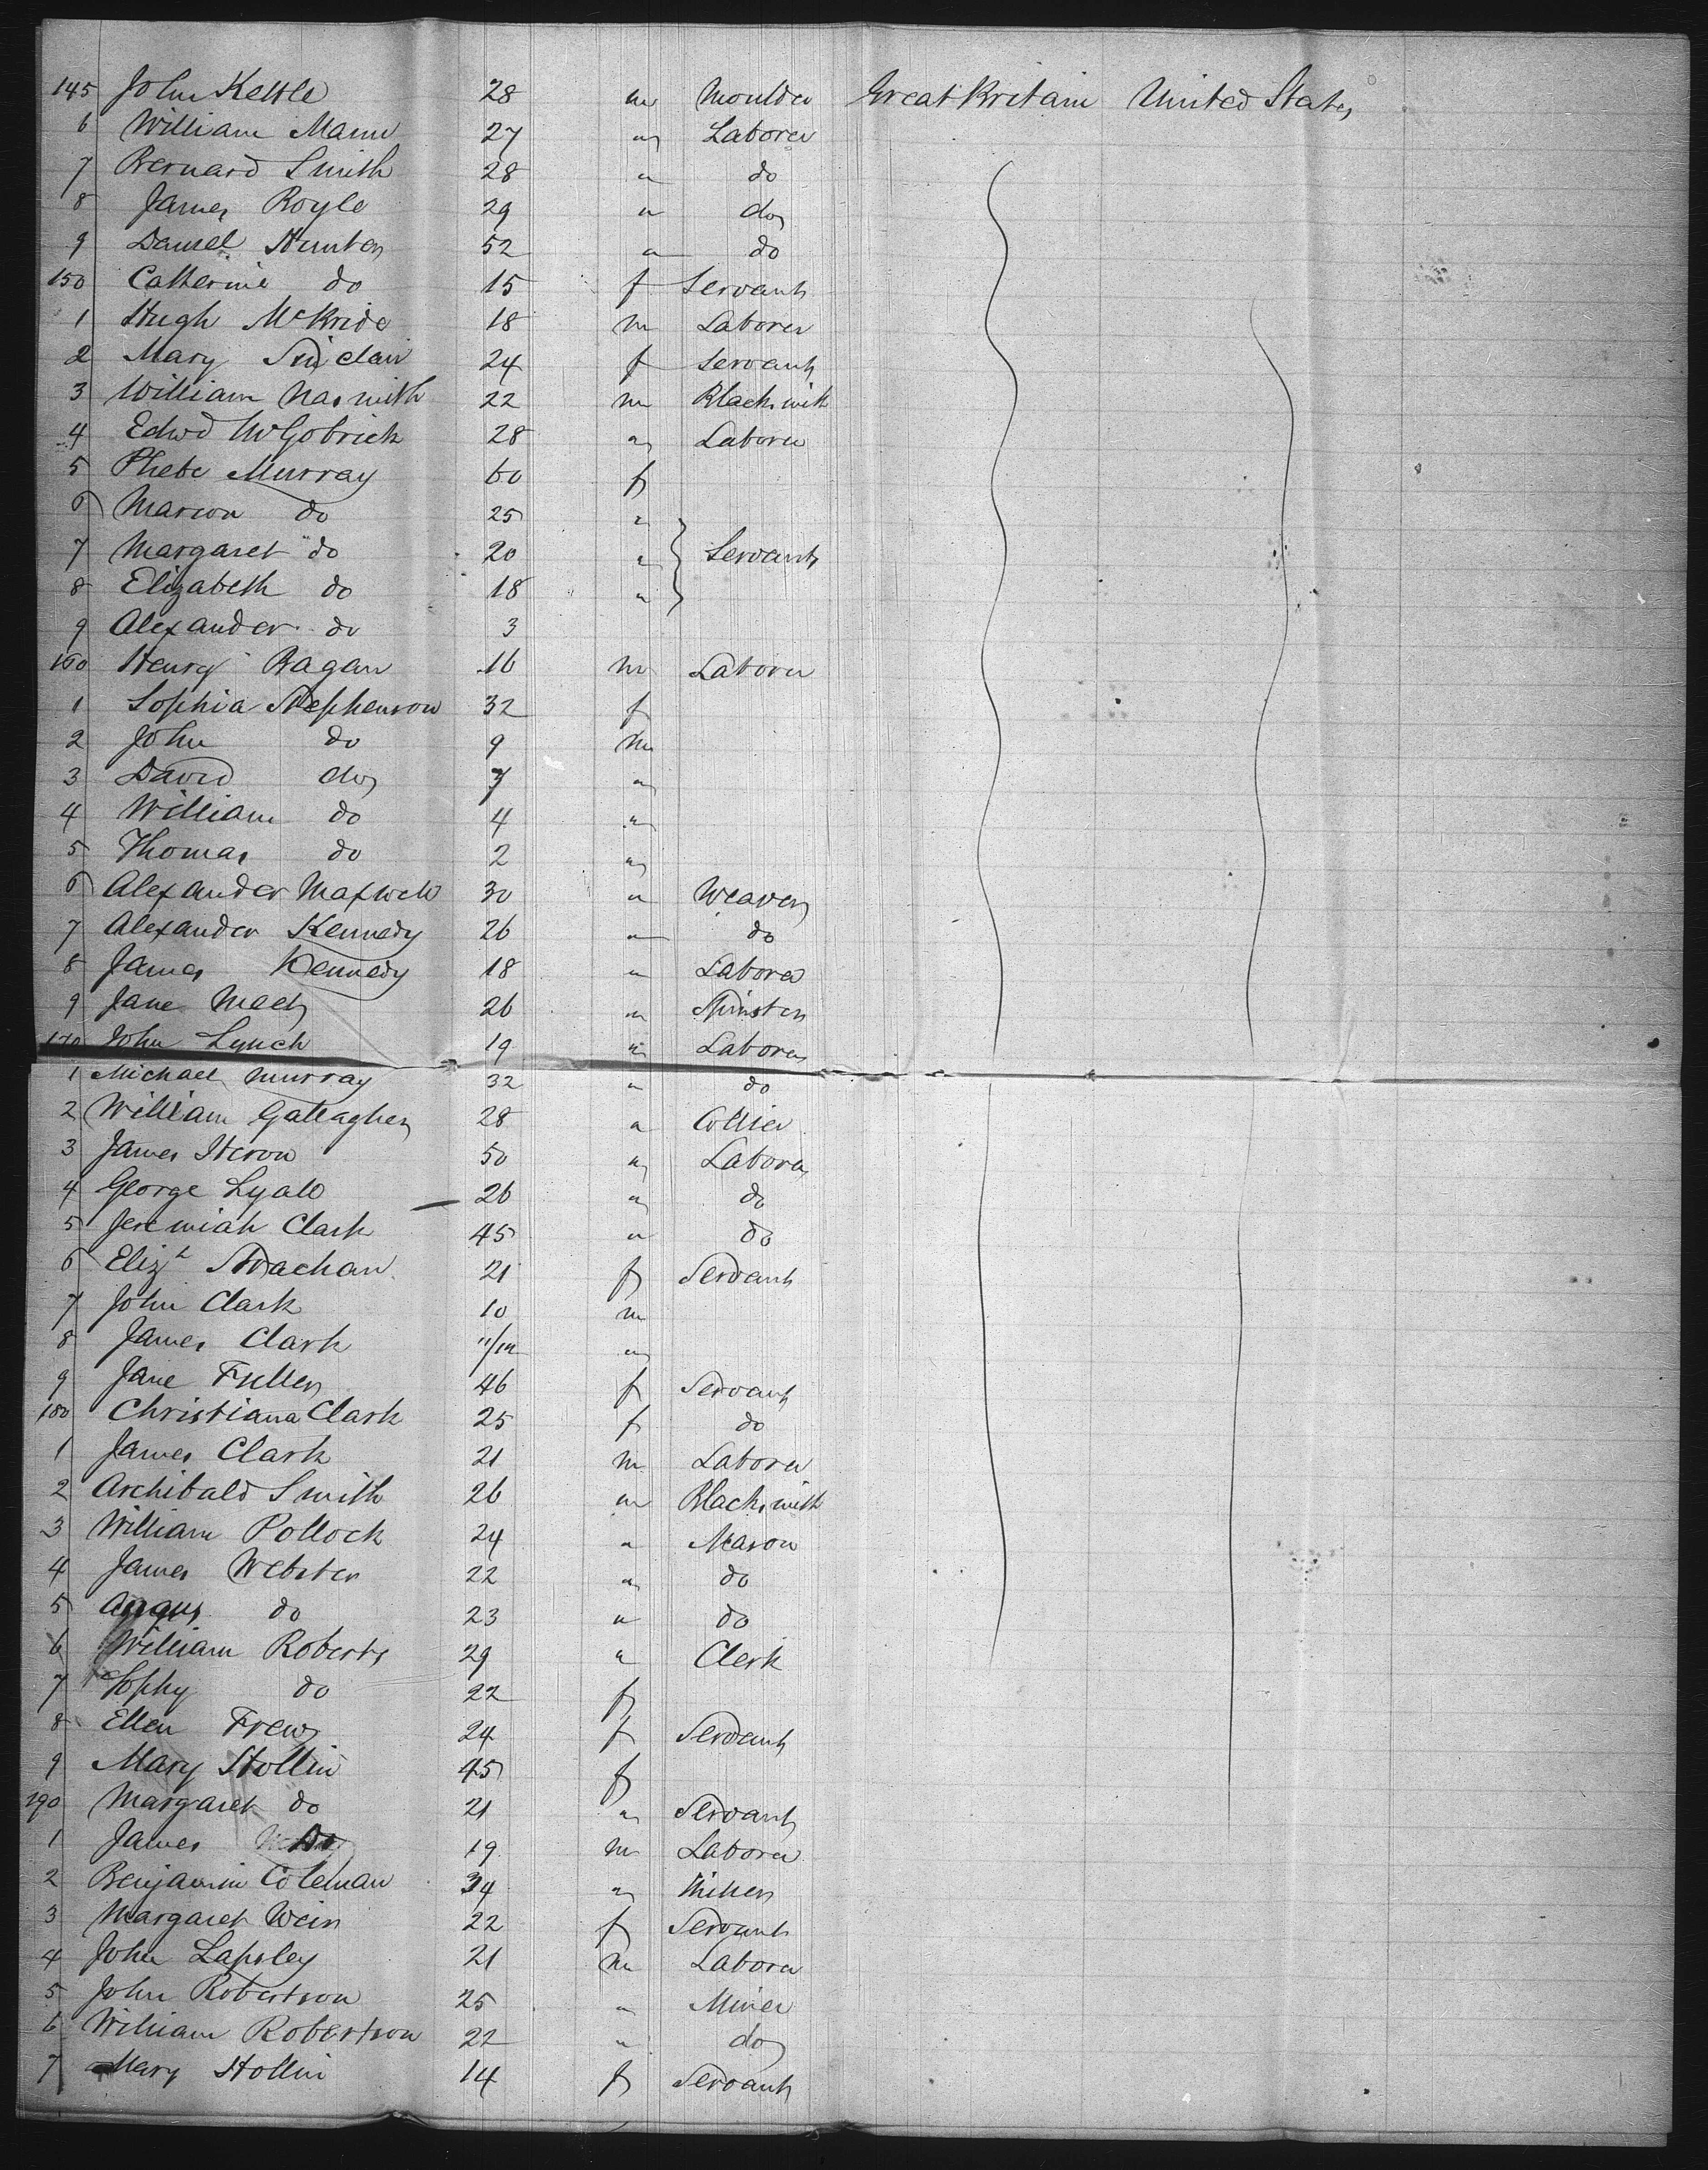 145 John Kettle 28 m Moulder Great Britain United States
6 William Mann 27 " Laborer
7 Bernard Smith 28 " do
8 James Royle 29 " do
9 Daniel Hunter 52 " do
150 Catherine do 15 f Servant
1 Hugh McBride 18 m Laborer
2 Mary Sinclair 24 f Servant
3 William Nasmith 22 m Blacksmith
4 Edwd McGobrick 28 " Laborer
5 Phebe Murray 60 f
6 Marion do 25 "
7 Margaret do 20 " Servants
8 Elizabeth do 18 "
9 Alexander do 3
160 Henry Ragan 16 m Laborer
1 Sophia Stephenson 32 f
2 John do 9 m
3 David do 7 "
4 William do 4 "
5 Thomas do 2 "
6 Alexander Maxwell 30 " Weaver
7 Alexander Kennedy 26 " do
8 James Kennedy 18 " Laborer
9 Jane 26 " Spinster
170 John Lynch 19 " Laborer
1 Michael Murray 32 " do
2 William Gallagher 28 " Collier
3 James Heron 50 " Laborer
4 George Lyall 26 " do
5 Jeremiah Clark 45 " do
6 Elizh Strachan 21 f Servant
7 John Clark 10 m
8 James Clark 11/12 "
9 Jane Fuller 46 f Servant
180 Christiana Clark 25 f do
1 James Clark 21 m Laborer
2 Archibald Smith 26 m Blacksmith
3 William Pollock 24 " Mason
4 James Webster 22 " do
5 Angus do 23 " do
6 William Roberts 29 " Clerk
7 Sophy do 22 f
8 Ellen Frew 24 f Servant
9 Mary Hollin 45 f
190 Margaret do 21 " Servant
1 James 19 m Laborer
2 Benjamin Coleman 34 " Miller
3 Margaret Weir 22 f Servant
4 John Lapsley 21 m Laborer
5 John Robertson 25 " Miner
6 William Robertson 22 " do
7 Mary Hollin 14 f Servant